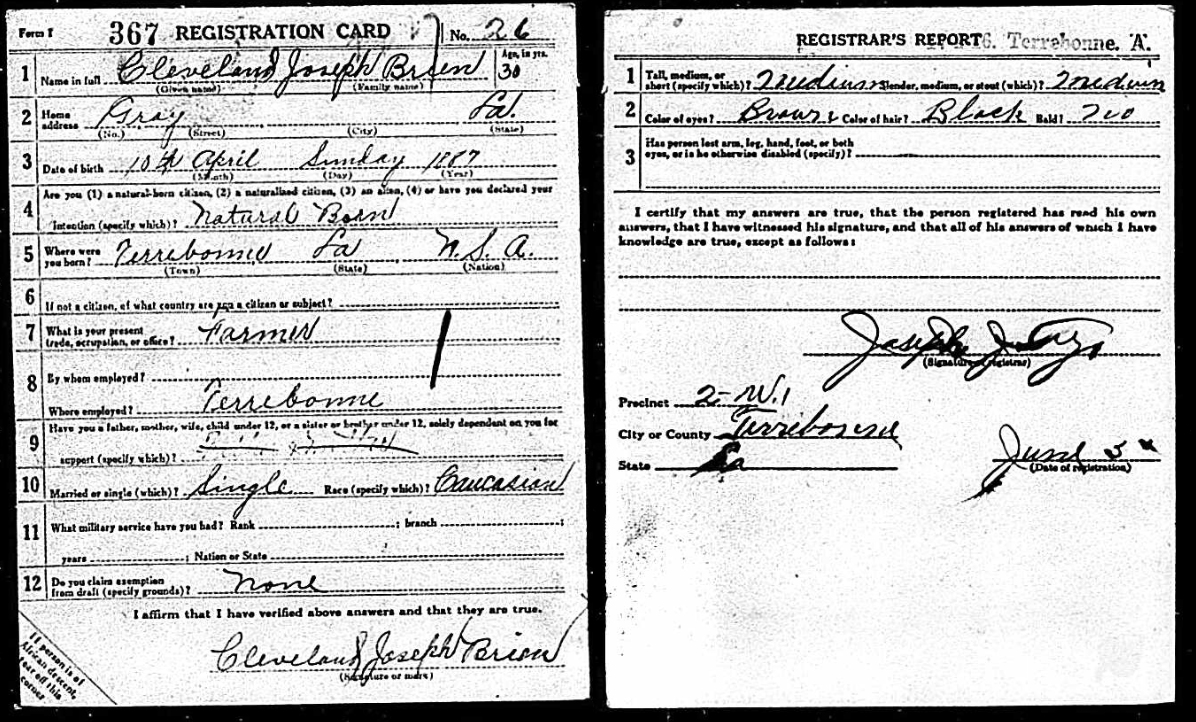 Form 1 367 REGISTRATION CARD No. 26
1 Name in full Cleveland Joseph Brien Age, in yrs. 30
(Given name) (Family name)
2 Home address Gray La.
(No.) (Street) (City) (State)
3 Date of birth 10th April Sunday 1887
(Month) (Day) (Year)
4 Are you (1) a natural-born citizen, (2) a naturalized citizen, (3) an alien, (4) or have you declared your
intention (specify which)? Natural Born
5 Where were you born? Terrebonne La U.S.A.
(Town) (State) (Nation)
6 If not a citizen, of what country are you a citizen or subject?
7 What is your present trade, occupation, or office? Farmer
8 By whom employed?
Where employed? Terrebonne
9 Have you a father, mother, wife, child under 12, or a sister or brother under 12, solely dependent on you for
support (specify which)?
10 Married or single (which)? Single Race (specify which)? Caucasian
11 What military service have you had? Rank ; branch ;
years ; Nation or State
12 Do you claim exemption from draft (specify grounds)? None
I affirm that I have verified above answers and that they are true.
Cleveland Joseph Brien
(Signature or mark)
If person is of
African descent,
tear off this
corner
REGISTRAR'S REPORT Terrebonne. A.
1 Tall, medium, or short (specify which)? Medium Slender, medium, or stout (which)? Medium
2 Color of eyes? Brown Color of hair? Black Bald? No
3 Has person lost arm, leg, hand, foot, or both
eyes, or is he otherwise disabled (specify)?
I certify that my answers are true, that the person registered has read his own
answers, that I have witnessed his signature, and that all of his answers of which I have
knowledge are true, except as follows:
Joseph J.
(Signature of registrar)
Precinct 2-W.1
City or County Terrebonne
State La
June 5
(Date of registration)